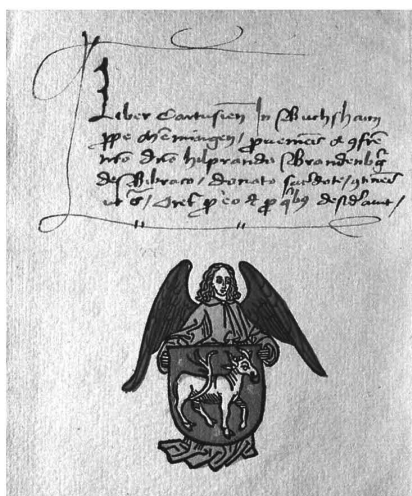 Liber Cartusien̄ In Buchshaim
ꝓpe Memingen / proueniēs a ꝯfrē
nr̄o dño hilprando Brandenbg̃
de Bibraco / donato sacdote /
/ Oret̃ ꝓ eo et ꝓ qbꝰ desid̃auit /